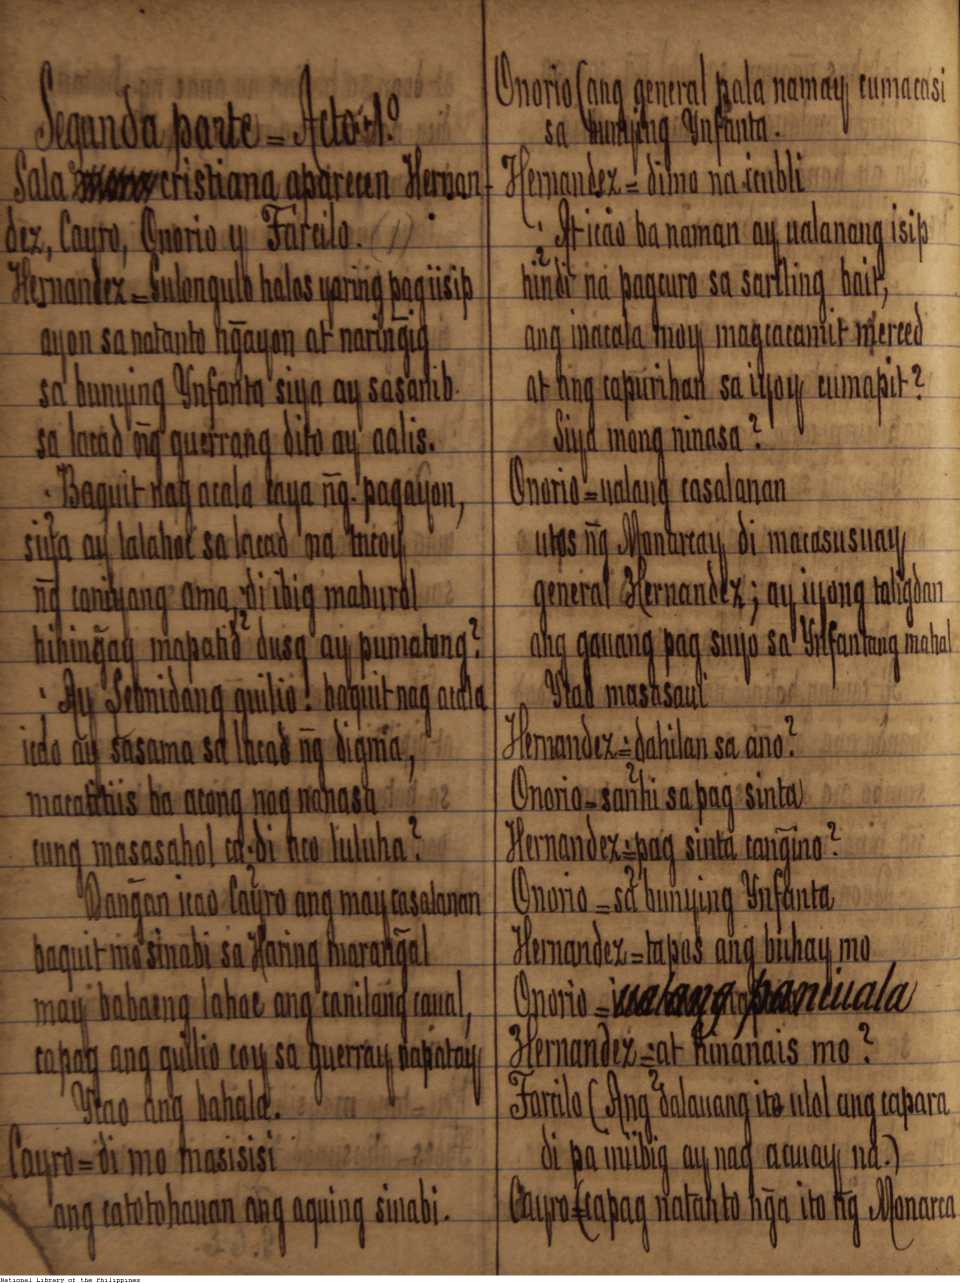 Segunda parte = Acto 1.º
Sala cristiana aparecen Hernan-
dez, Cayro, Onorio y Farcilo. (1)
Hernandez = Gulongulo halos yaring pagiisip
ayon sa natanto ñgayon at naringig
sa bunying Ynfanta siya ay sasanib
sa lacad ñg guerrang dito ay aalis.
Baquit nag acala caya ñg pagayon,
siya ay lalahoc sa lacad na tucoy
ñg caniyang ama, di ibig mahurol
hihingãy mapatid dusa ay pumatong?
¡Ay Sebnidang guilio! baquit nag acala
icao ay sasama sa lacad ñg digma,
macatitiis ba acong nag nanasa
cung masasahol ca di aco luluha?
Dañgan icao Cayro ang may casalanan
baquit mo sinabi sa Haring marañgal
may babaeng lahac ang canilang caual,
capag ang guilio coy sa guerray napatay
Ycao ang bahala.
Cayro = di mo masisisi
ang catotohanan ang aquing sinabi.
Onorio (ang general pala namay cumacasi
sa bunying Ynfanta.
Hernandez = dimo na icubli
At icáo ba naman ay ualanang isip
hindi na pagcuro sa sariling bait,
ang inacala moy magcacamit merced
at ang capurihan sa iyoy cumapit?
Siya mong ninasa?
Onorio = ualang casalanan
utos ñg Monarcay di macasusuay
general Hernandez; ay iyong taligdan
ang gauang pag suyo sa Ynfantang mahal
Ycao masasaui
Hernandez = ¿dahilan sa ano?
Onorio = sanhi sa pag sinta
Hernandez = ¿pag sinta cañgino?
Onorio = sa bunying Ynfanta
Hernandez = tapos ang buhay mo
Onorio = ualang paniuala
Hernandez = at hinanais mo?
Farcilo (Ang dalauang ito ulol ang capara
di pa iniibig ay nag aauay na.)
Cayro = (capag natanto ñga ito ñg Monarca
National Library of the Philippines